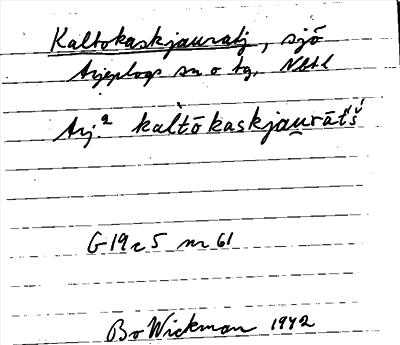 Kaltokaskjauratj, sjö
Arjeplogs sn o tg, Nbtl
Arj.² kaltōkaskjau̯rātš́
G19 c 5 nr 61
Bo Wickman 1942